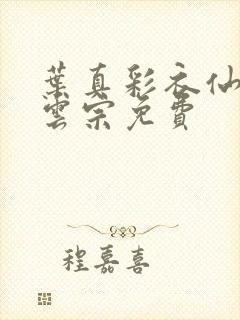 葉真彩衣仙
雲宗免費
程嘉喜